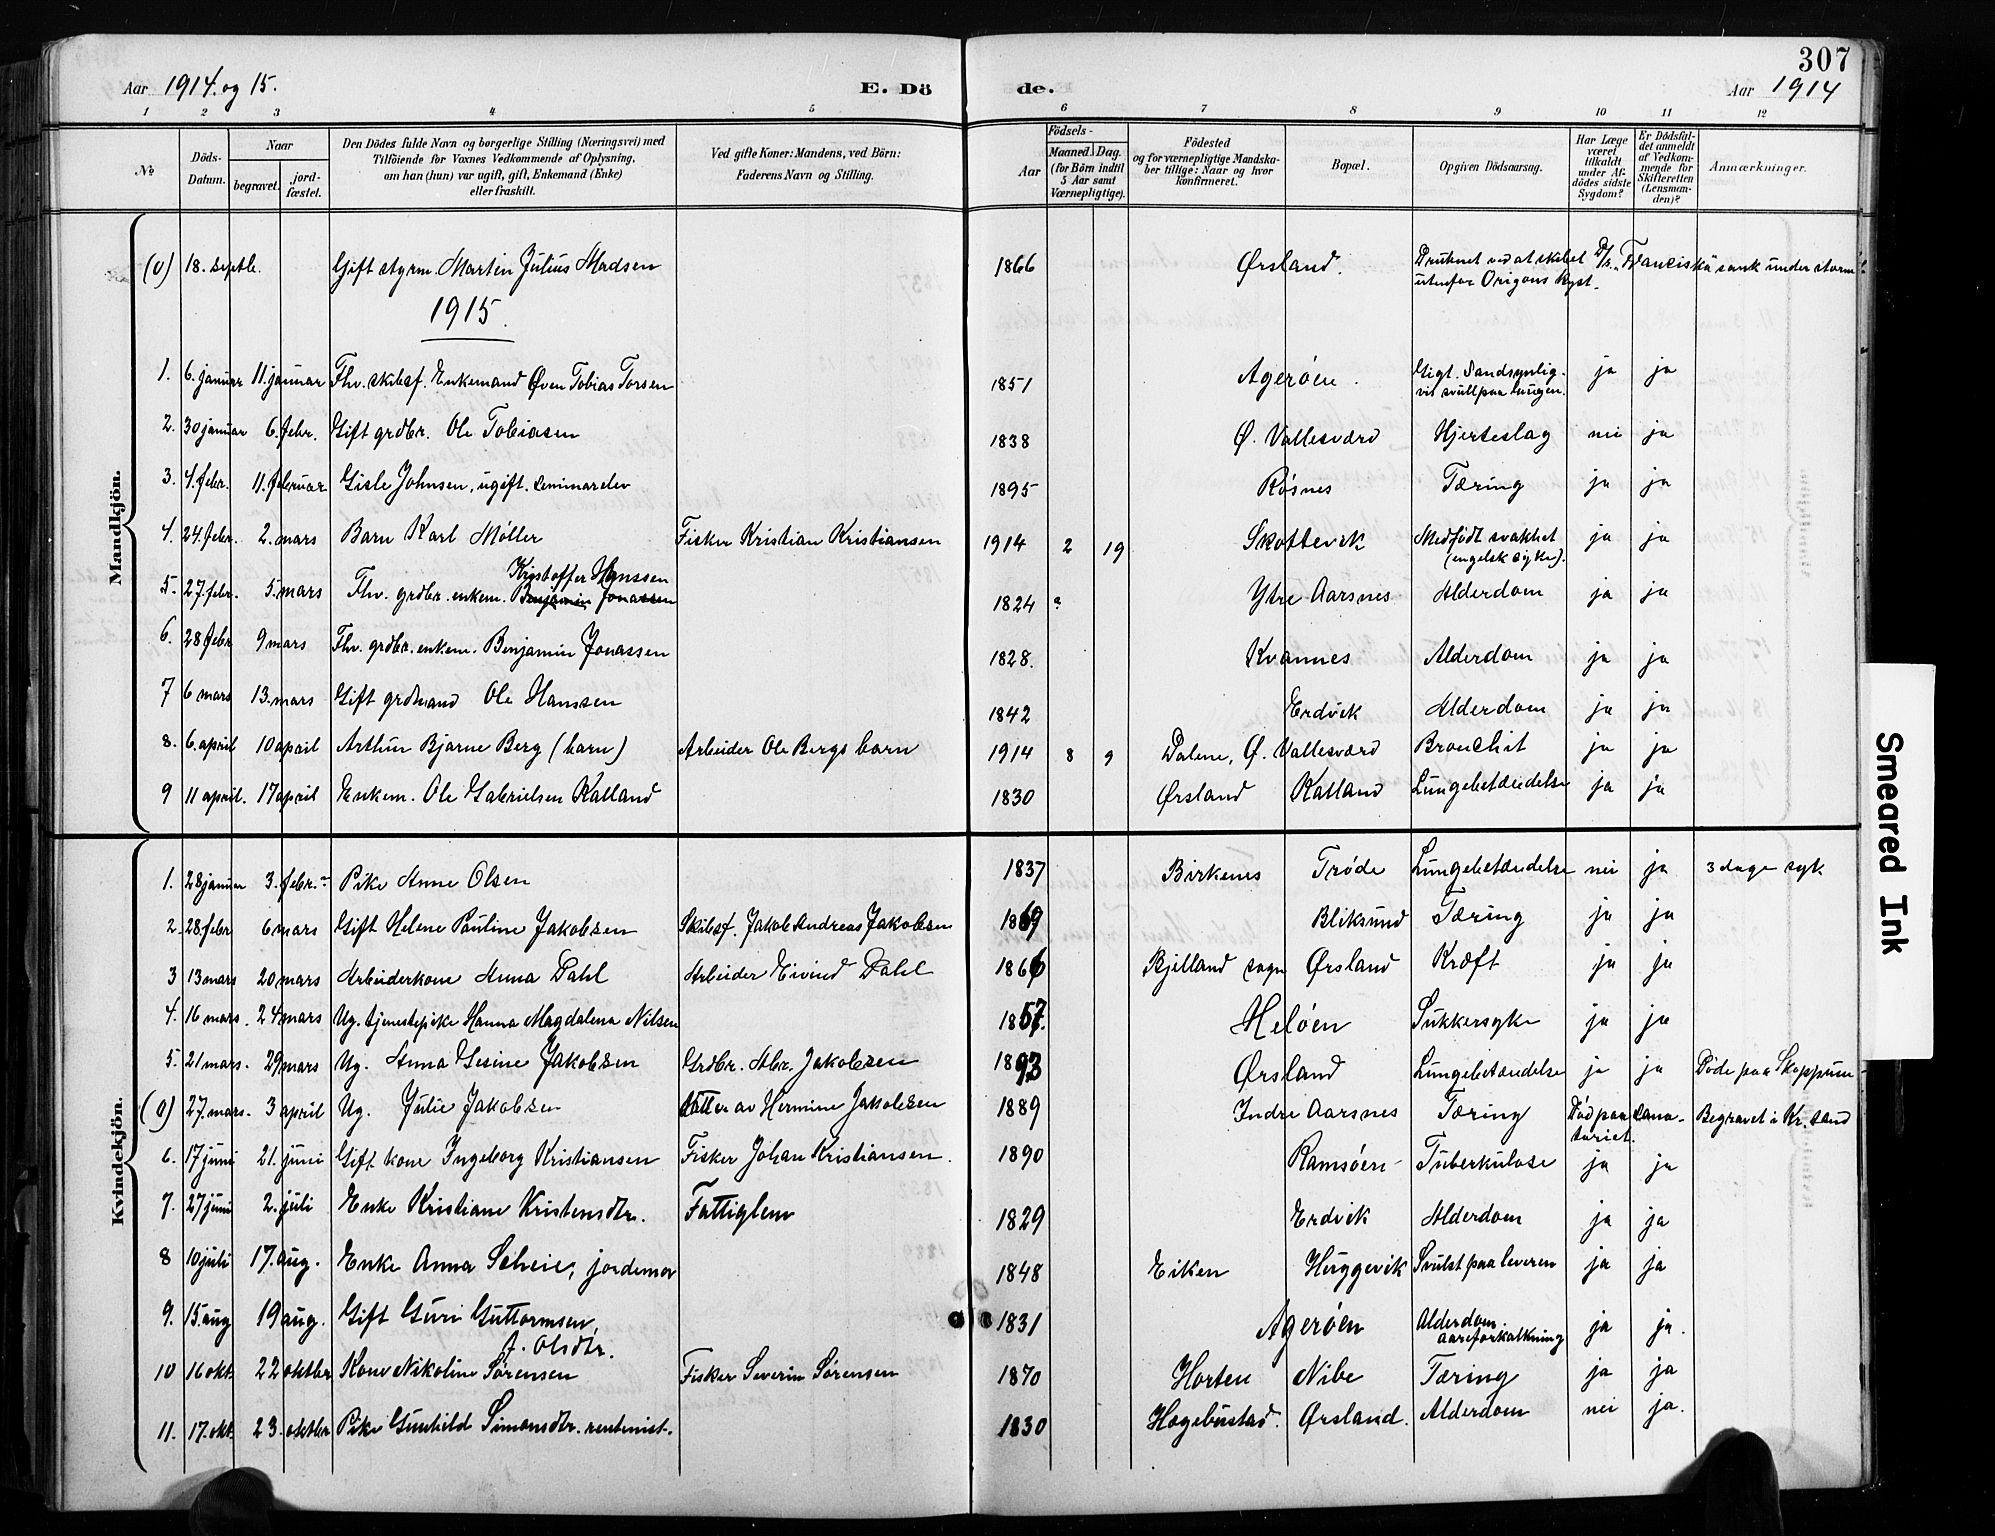 307
Aar 1914 og 15. E. Dö de. Aar 1914
1 2 3 4 5 6 7 8 9 10 11 12
No
Döds-Datum.
Naar
begravet.
jordfæstet.
Den Dödes fulde Navn og borgerlige Stilling (Næringsvei) med
Tilföiende for Voxnes Vedkommende af Oplysning,
om han (hun) var ugift, gift, Enkemand (Enke)
eller fraskilt.
Ved gifte Koner: Mandens, ved Börn:
Faderens Navn og Stilling.
Födsels-
Aar
Maaned. Dag.
(for Börn indtil
5 Aar samt
Værnepligtige).
Födested
og for værnepligtige Mandska-
ber tillige: Naar og hvor
konfirmeret.
Bopæl.
Opgiven Dödsaarsag.
Har Læge
været
tilkaldt
under Af-
dödes sidste
Sygdom?
Er Dödsfal-
det anmeldt
af Vedkom-
mende for
Skifteretten
(Lensman-
den)?
Anmærkninger.
Mandkjön.
(0) 18. septb. Gift styrm. Martin Julius Madsen 1866 Ørsland. Druknet ved at skibet D/s. "Franciska" sank under storm
utenfor Origons kyst.
1915.
1. 6. januar 11. januar Fhv. skibsf. Enkemand Øven Tobias Torsen 1851 Agerøen. Gigt. Sandsynlig-
vis svull paa lungen. ja ja
2. 30 januar 6. febr. Gift grdbr. Ole Tobiasen 1838 Ø. Vallesværd Hjerteslag nei ja
3. 4. febr. 11. februar Gisle Johnsen, ugift. seminarelev 1895 Røsnes Tæring ja ja
4. 24. febr. 2. mars Barn Karl Møller Fisker Kristian Kristiansen 1914 2 19 Skottevik Medfødt svakhet
(engelsk syke). ja ja
Kristoffer Hanssen
5. 27. febr. 5. mars Fhv. grdbr. enkem. Benjamin Jonassen 1824 ? Ytre Aarsnes Alderdom ja ja
6. 28 febr 9 mars Fhv. grdbr. enkem. Benjamin Jonassen 1828. Kvannes Alderdom ja ja
7 6 mars 13. mars Gift grdmand Ole Hanssen 1842 Erdvik Alderdom ja ja
8. 6. april 10 april Arthur Bjarne Berg (barn) Arbeider Ole Bergs barn 1914 8 9 Dalene, Ø. Vallesværd Bronchit ja ja
9 11 april. 17 april Enkem. Ole Gabrielsen Kalland 1830 Ørsland Kalland Lungebetændelse ja ja
Kvindekjön.
1. 28 januar 3. febr. Pike Anne Olsen 1837 Birkenes Trøde Lungebetændelse nei ja 3 dage syk
2. 28 febr 6 mars Gift Helene Pauline Jakobsen Skibsf. Jakob Andreas Jakobsen 1869 Bliksund Tæring ja ja
3 13 mars 20 mars Arbeiderkone Anna Dahl Arbeider Eivind Dahl 1866 Bjelland sogn Ørsland Kræft ja ja
4. 16 mars. 24 mars Ug. tjenestepike Hanna Magdalena Nilsen 1857. Heløen Sukkersyke ja ja
5. 21 mars. 29 mars Ug. Anna Gesine Jakobsen Grdbr. Abr. Jakobsen 1893 Ørsland Lungebetændelse ja ja Døde paa Skoppum
(0) 27. mars. 3 april Ug. Julie Jakobsen datter av Hermine Jakobsen 1889 Indre Aarsnes Tæring Død paa sana-
toriet. Begravet i Kr.sand
6. 17 juni 21. juni Gift kone Ingeborg Kristiansen Fisker Johan Kristiansen. 1890 Ramsøen Tuberkulose ja ja
7. 27 juni 2. juli Enke Kristiane Kristensdtr. Fattiglem 1829 Erdvik Alderdom ja ja
8 10 juli 17. aug. Enke Anna Scheie, jordemor 1848 Eiken Heggevik Svulst paa leveren ja ja
9. 15. aug 19 aug. Gift Guri Guttormsen,
f. Olsdtr. 1831 Agerøen Alderdom.
aareforkalkning ja ja.
10 16 okt. 22 oktbr Kone Nikoline Sørensen Fisker Severin Sørensen 1870 Horten Nibe Tæring ja ja
11. 17. okt. 23. oktbr Pike Gunhild Simonsdtr. rentenist. 1830 Hægebostad. Ørsland. Alderdom nei ja.
Smeared Ink